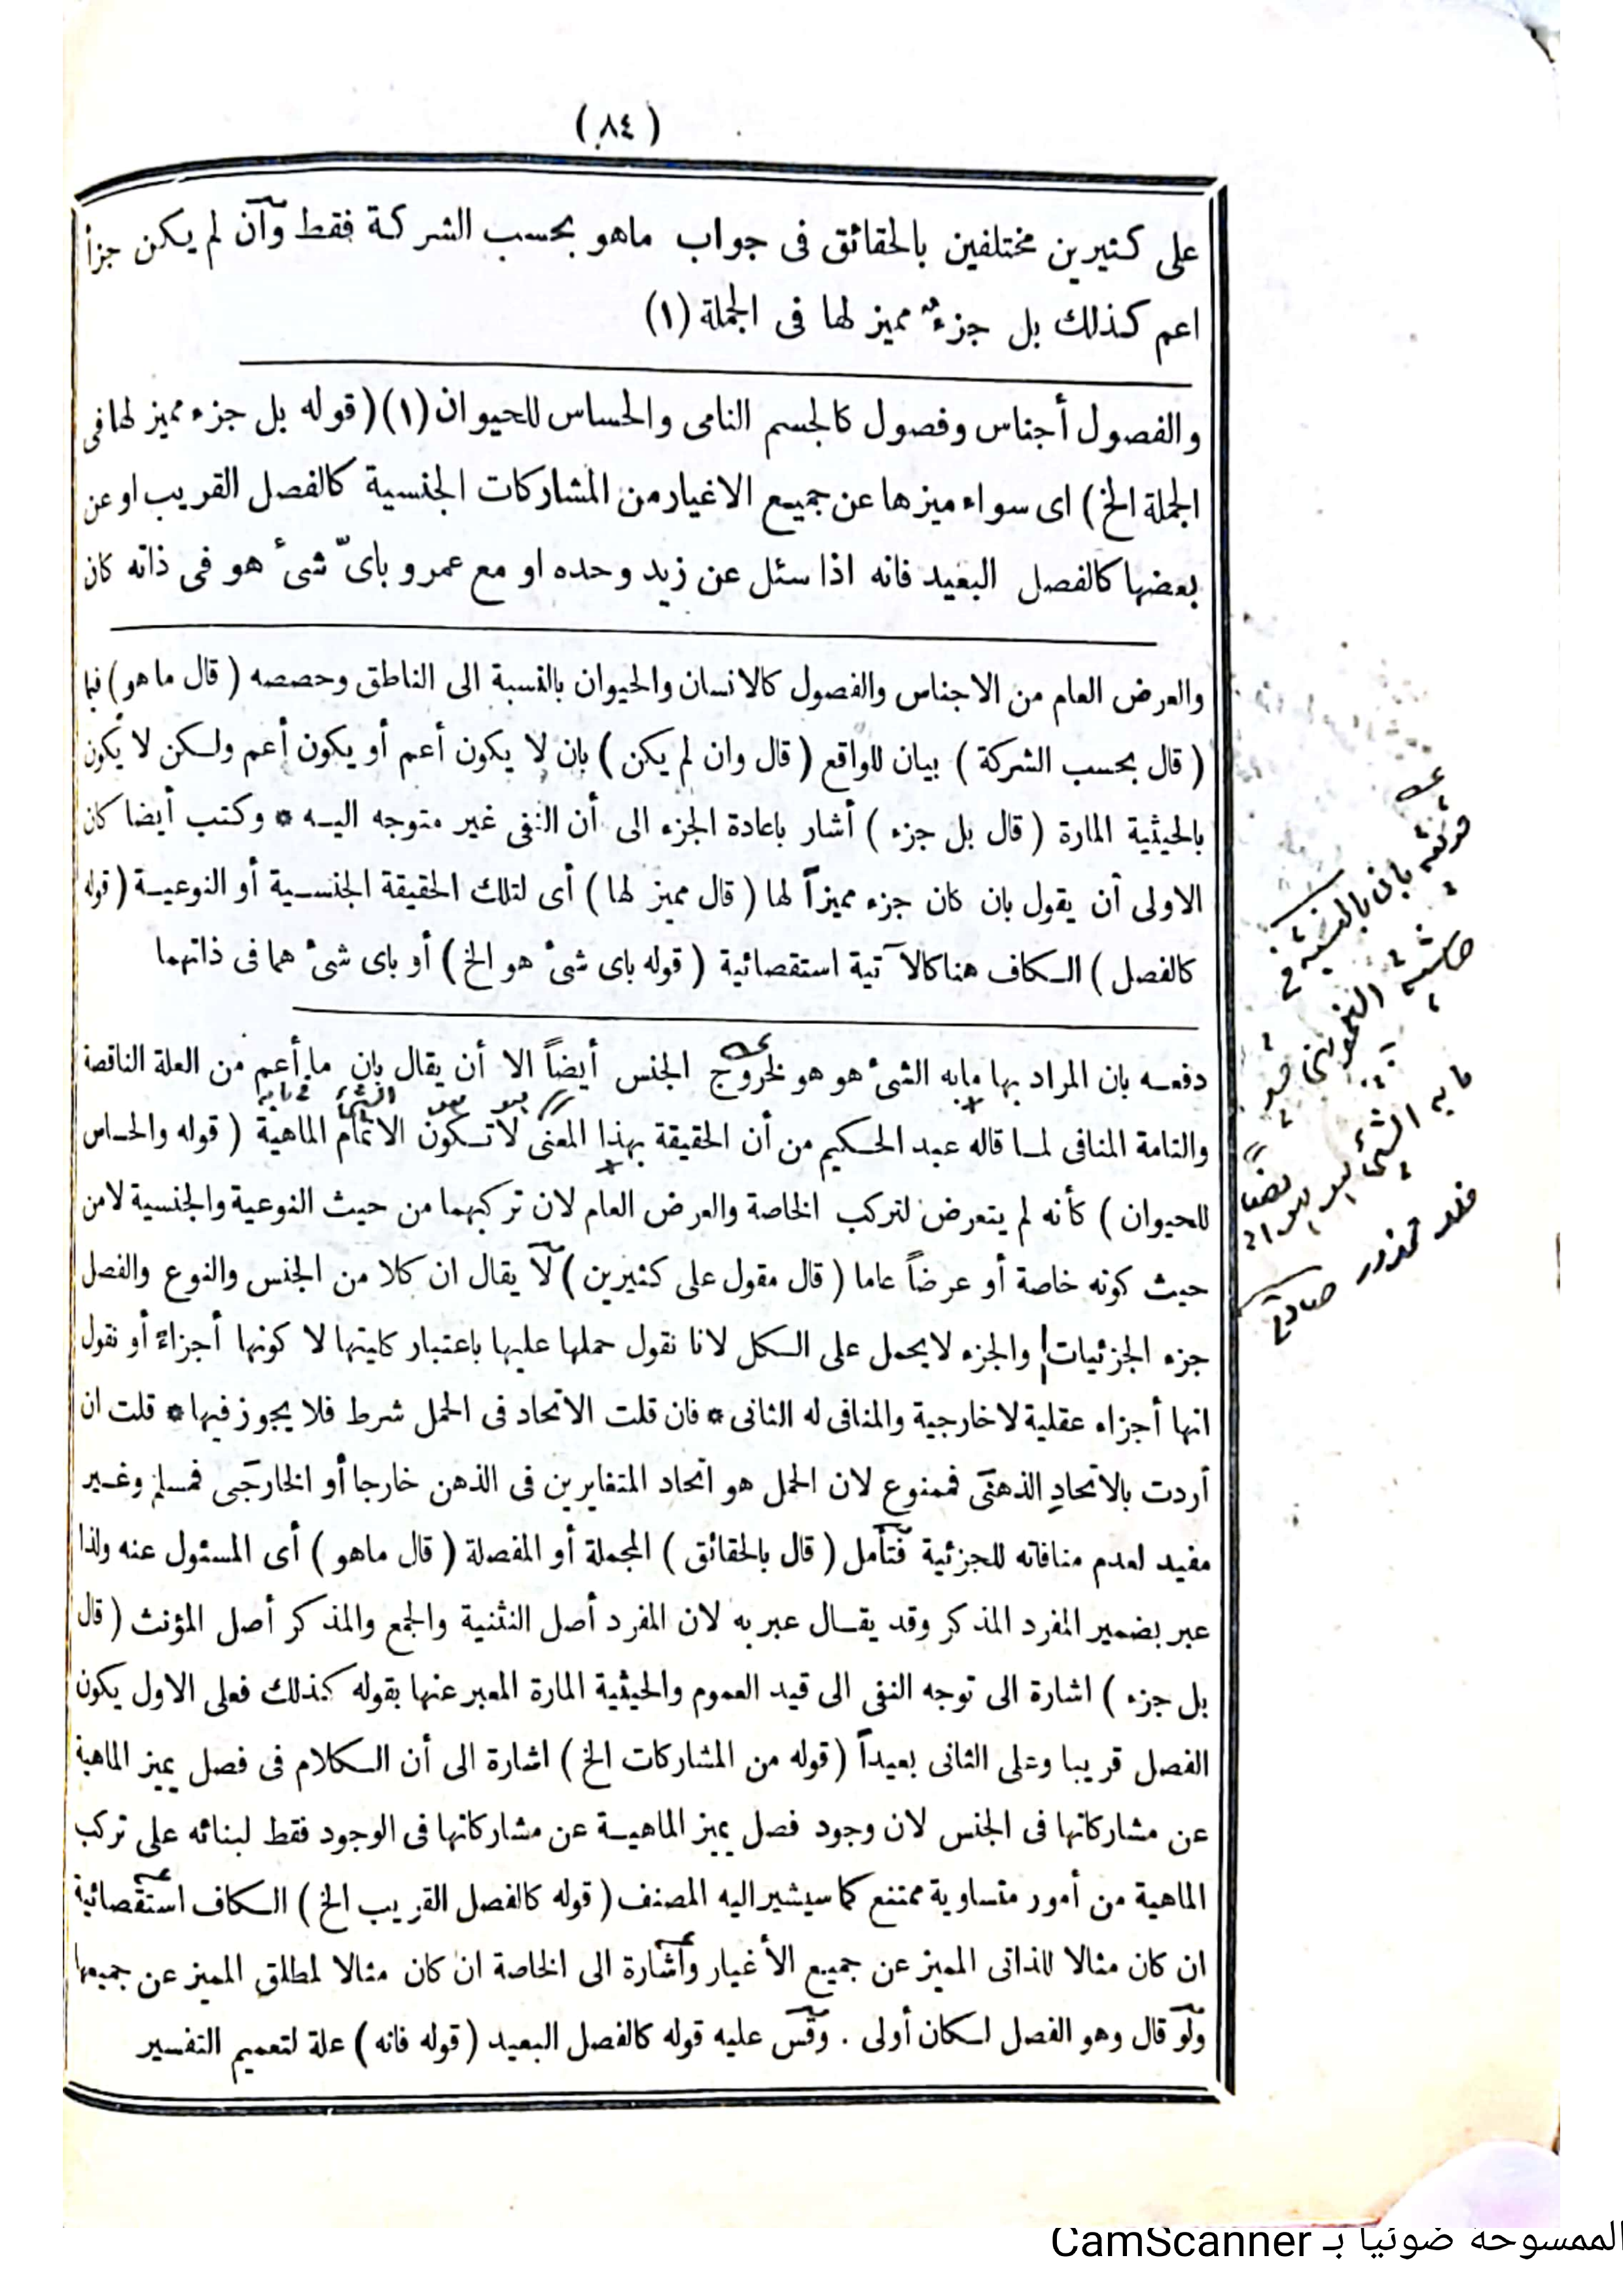 (٨٤)
على كثيرين مختلفين بالحقائق فى جواب ماهو بحسب الشركة فقط وان لم يكن جزأ
اعم كذلك بل جزء مميز لها فى الجملة (١)
والفصول أجناس وفصول كالجسم النامى والحساس للحيوان (١) ( قوله بل جزء مميز لها فى
الجملة الخ ) اى سواء ميزها عن جميع الاغيار من المشاركات الجنسية كالفصل القريب او عن
بعضها كالفصل البعيد فانه اذا سئل عن زيد وحده او مع عمرو باىّ شىء هو فى ذاته كان
والعرض العام من الاجناس والفصول كالانسان والحيوان بالنسبة الى الناطق وحصصه ( قال ماهو ) فيما
( قال بحسب الشركة ) بيان للواقع ( قال وان لم يكن ) بان لا يكون أعم أو يكون أعم ولكن لا يكون
بالحيثية المارة ( قال بل جزء ) أشار باعادة الجزء الى أن النفى غير متوجه اليه * وكتب أيضا كان
الاولى أن يقول بان كان جزء مميزاً لها ( قال مميز لها ) أى لتلك الحقيقة الجنسية أو النوعية ( قوله
كالفصل ) الكاف هنا كالآتية استقصائية ( قوله باى شىء هو الخ ) أو باى شىء هما فى ذاتهما
دفعه بان المراد بها مابه الشىء هو هو لخروج الجنس أيضاً الا أن يقال بان ما أعم من العلة الناقصة
والتامة المنافى لما قاله عبد الحكيم من أن الحقيقة بهذا المعنى لاتكون الاتمام الماهية ( قوله والحساس
للحيوان ) كأنه لم يتعرض لتركب الخاصة والعرض العام لان تركبهما من حيث النوعية والجنسية لامن
حيث كونه خاصة أو عرضاً عاما ( قال مقول على كثيرين ) لا يقال ان كلا من الجنس والنوع والفصل
جزء الجزئيات والجزء لايحمل على الكل لانا نقول حملها عليها باعتبار كليتها لا كونها أجزاءً أو نقول
انها أجزاء عقلية لاخارجية والمنافى له الثانى * فان قلت الاتحاد فى الحمل شرط فلا يجوز فيها * قلت ان
أردت بالاتحاد الذهنى فممنوع لان الحمل هو اتحاد المتغايرين فى الذهن خارجا أو الخارجى فمسلم وغير
مفيد لعدم منافاته للجزئية فتأمل ( قال بالحقائق ) المجملة أو المفصلة ( قال ماهو ) أى المسئول عنه ولذا
عبر بضمير المفرد المذكر وقد يقال عبر به لان المفرد أصل التثنية والجمع والمذكر أصل المؤنث ( قال
بل جزء ) اشارة الى توجه النفى الى قيد العموم والحيثية المارة المعبر عنها بقوله كذلك فعلى الاول يكون
الفصل قريبا وعلى الثانى بعيداً ( قوله من المشاركات الخ ) اشارة الى أن الكلام فى فصل يميز الماهية
عن مشاركاتها فى الجنس لان وجود فصل يميز الماهية عن مشاركاتها فى الوجود فقط لبنائه على تركب
الماهية من أمور متساوية ممتنع كما سيشير اليه المصنف ( قوله كالفصل القريب الخ ) الكاف استقصائية
ان كان مثالا للذاتى المميز عن جميع الأغيار وأشارة الى الخاصة ان كان مثالا لمطلق المميز عن جميعها
ولو قال وهو الفصل لكان أولى . وقس عليه قوله كالفصل البعيد ( قوله فانه ) علة لتعميم التفسير
الممسوحة ضوئيا بـ CamScanner